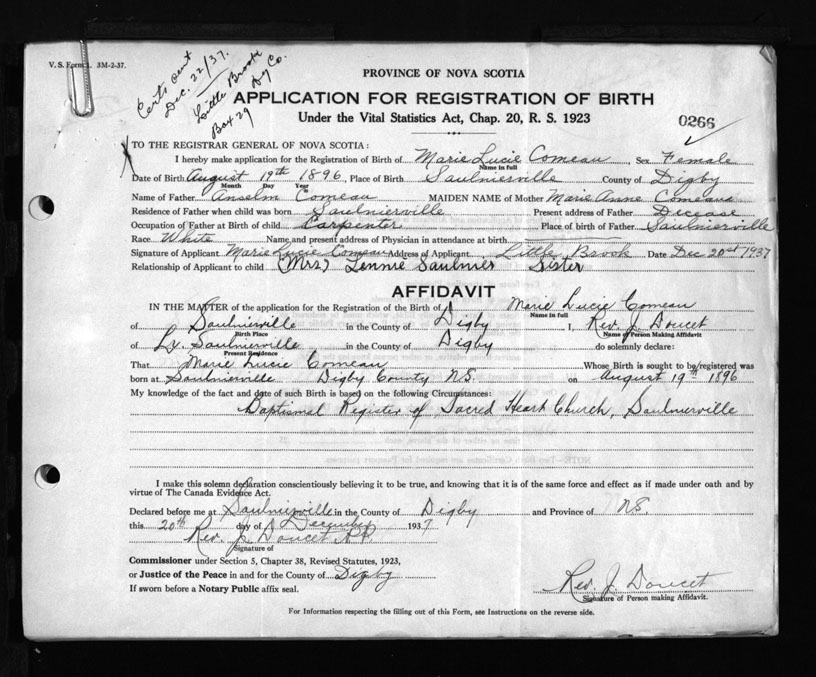 V. S. Form 1. 3M-2-37.
Certs sent
Dec. 22/37.
Little Brook
Dy Co.
Box 29
PROVINCE OF NOVA SCOTIA
APPLICATION FOR REGISTRATION OF BIRTH
Under the Vital Statistics Act, Chap. 20, R. S. 1923
0266
TO THE REGISTRAR GENERAL OF NOVA SCOTIA:
I hereby make application for the Registration of Birth of Marie Lucie Comeau, Sex Female
Name in full
Date of Birth August 19th 1896, Place of Birth Saulnierville County of Digby
Month Day Year
Name of Father Anselm Comeau MAIDEN NAME of Mother Marie Anne Comeau
Residence of Father when child was born Saulnierville Present address of Father Decease
Occupation of Father at Birth of child Carpenter Place of birth of Father Saulnierville
Race White Name and present address of Physician in attendance at birth
Signature of Applicant Marie Lucie Comeau Address of Applicant Little Brook Date Dec 20st 1937
Relationship of Applicant to child (Mrs) Lennie Saulnier Sister
AFFIDAVIT
IN THE MATTER of the application for the Registration of the Birth of Marie Lucie Comeau
Name in full
of Saulnierville in the County of Digby I, Rev. J. Doucet
Birth Place Name of Person Making Affidavit
of Saulnierville in the County of Digby do solemnly declare:
Present Residence
That Marie Lucie Comeau Whose Birth is sought to be registered was
born at Saulnierville Digby County N.S. on August 19th 1896
My knowledge of the fact and date of such Birth is based on the following Circumstances:
Baptismal Register of Sacred Heart Church, Saulnierville
I make this solemn declaration conscientiously believing it to be true, and knowing that it is of the same force and effect as if made under oath and by
virtue of The Canada Evidence Act.
Declared before me at Saulnierville in the County of Digby and Province of N.S.
this 20th day of December 1937
Rev. J. Doucet P.P.
Signature of
Commissioner under Section 5, Chapter 38, Revised Statutes, 1923,
or Justice of the Peace in and for the County of Digby
If sworn before a Notary Public affix seal.
Rev. J. Doucet
Signature of Person making Affidavit.
For Information respecting the filling out of this Form, see Instructions on the reverse side.